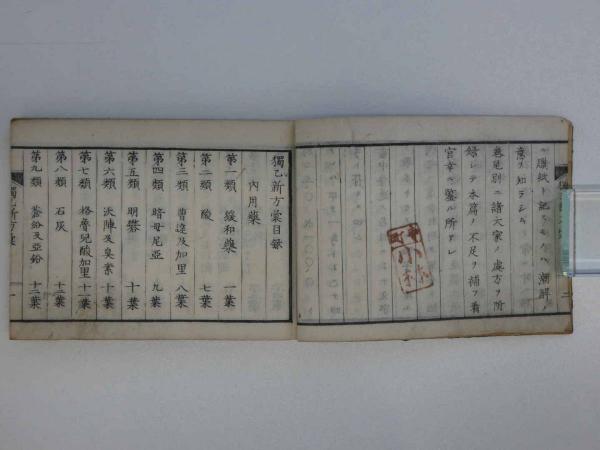 意ヲ知ラシム
巻尾別ニ諸大家ノ處方ヲ附
録シテ本篇ノ不足ヲ補フ看
官幸ニ鑒ル所アレ
小林
獨乙新方彙目録
内用藥
第一類 緩和藥 一葉
第二類 酸 七葉
第三類 曹達及加里 八葉
第四類 暗母尼亞 九葉
第五類 明礬 十葉
第六類 沃陳及臭素 十一葉
第七類 格魯兒酸加里 十一葉
第八類 石灰 十二葉
第九類 蒼鉛及亞鉛 十二葉
獨乙新方彙
一
二